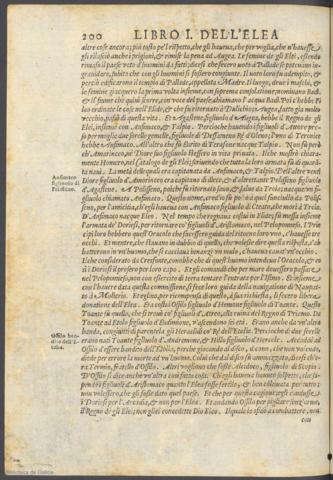 200 LIBRO I. DELL'ELEA
altre cose ancora; più tosto pe'l rispetto, che gli haueua, che per voglia, che n'hauesse
gli rilasciò anche i prigioni, & rimise la pena ad Augea. Le femine de gli Elei, essendo
rimaso il paese voto d'huomini da fatti; dicesi che fecero voto à Pallade se poteuano in-
grauidare, subito che con gli huomini si fossero congiunte. Il voto loro fu adempito, &
però dedicarono il tempio di Pallade, appellata Madre. Il luogo, doue i maschi, &
le femine giacquero la prima volta insieme, con suprema
& il fiume che quiui scorre, con voce del paese, chiamano l'acqua Badi. Poi
lor ordinate le cose nell'Elide, & che fu ritornato
vecchio, passò di questa vita. Et Agastene, figliuolo d'Augea, hebbe il Regno de gli
Elei, insieme con Anfimaco, & Talpio. Perche hauendo i figliuoli d'Attore pre-
se per moglie due sorelle gemelle, figliuole di Dessameno Re d'Oleno; l'uno di Teronice
hebbe Anfimaco. All'altro che fù Eurito di Terafone nacque Talpio. Non fù però
ch'Amarinceo, nè Diore suo figliuolo stessero in vita priuata. Il che mostrò chiara-
mente Homero, nel Catalogo de gli Elei,
ta naui. La metà delle quali era capitanata da Anfimaco, & Talpio. Dell'altre venti
Diore figliuolo d'Amarinceo era capo di diece, & d'altrettante Polisseno figliuolo
d'Agastene. A Polisseno, poiche fu ritornato sano, & saluo da Troia; nacque un fi-
gliuolo chiamato Anfimaco.
seno, per l'amicitia, ch'egli haueua con Anfimaco figliuolo di Cteato, che morì à Troia.
D'Anfimaco nacque Eleo. Nel tempo che regnaua costui in Elide; fù messa insieme
l'armata de' Doriesi, per ritornare co' figliuoli d'Aristomaco, nel Peloponneso. I Prin-
cipi loro hebbero quest'Oracolo che per guida del ritorno loro
occhi. Et mentre, che stauano in dubbio di quello, che volesse dire quella risposta, s'ab-
batterono in vn'huomo, che si cacciaua innanzi un mulo, c'haueua cauato vn'occhio.
Il che considerato da Cresfonte,
à i Doriesi il presero per loro capo. Et egli comandò che per mare douessero passare à
nel Peloponneso, non con essercito di terra tentare l'entrata per l'Istmo. Et insieme,
con l'hauere data questa commissione, si fece loro guida della nauigatione di Naupat-
to à Molicrio. Et essi, per ricompensa di questo, à sua richiesta, li fecero liberale
donatione dell'Elea. Era costui Ossilo figliuolo d'Hemone figliuolo di Toante. Questo
Toante fù quello, che si trouò co' figliuoli d'Atreo, alla ruina del Regno di Priamo. Da
Toante ad Etolo figliuolo d'Endimione,
bande, congiunti di parentela gli Heraclidi co' Re dell'Etolia. Percioche di due sorelle
erano nati Toante figliuolo d'Andremone, & Hillo figliuolo d'Hercole. Accadde ad
Ossilo d'essere bandito dell'Etolia, perche giocando al disco,
diede per errore la morte ad un'huomo. Colui che dal disco fù ammazzato, dicesi ch'e-
ra Termio, fratello d'Ossilo. Altri vogliono che fosse Alcidoco, figliuolo di Scopio.
D'Ossilo si dice anche vn'altra cosa fatta così. Ch'egli haueua sospetto, che sa-
pendo i figliuoli d'Aristomaco quanto l'Elea fosse fertile, & ben coltiuata per tutto;
non volessero, che gli fosse dato quel paese. Et che per questa cagione conducesse
i Doriesi per l'Arcadia, & non per l'Elea. Et andando Ossilo per pigliare senz'arme,
il Regno de gli Elei; non gliel concedette Dio Eleo. Il quale lo sfidò à combattere, non
con
Anfimaco
figliuolo di
Polisseno.
Ossilo ban-
dito dell'E-
tolia.
Biblioteca de Galicia